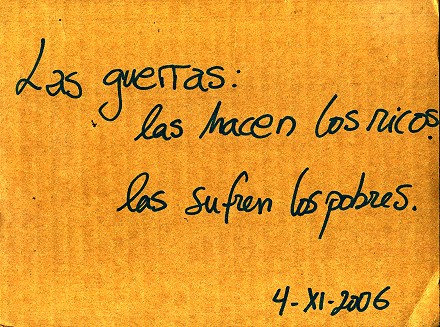 Las guerras:
las hacen los ricos.
las sufren los pobres.
4-XI-2006